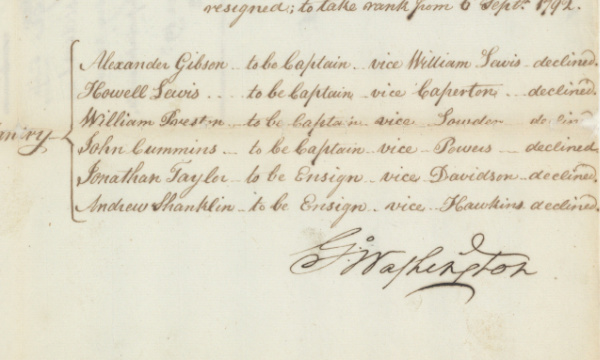 resigned; to take rank from 6 Sept. 1792.
Alexander Gibson to be Captain vice William Lewis declined.
Howell Lewis to be Captain vice Caperton declined.
William Preston to be Captain vice Lowder declined
John Cummins to be Captain vice Powers declined
Jonathan Taylor to be Ensign vice Davidson declined.
Andrew Shanklin to be Ensign vice Hawkins declined.
Go. Washington